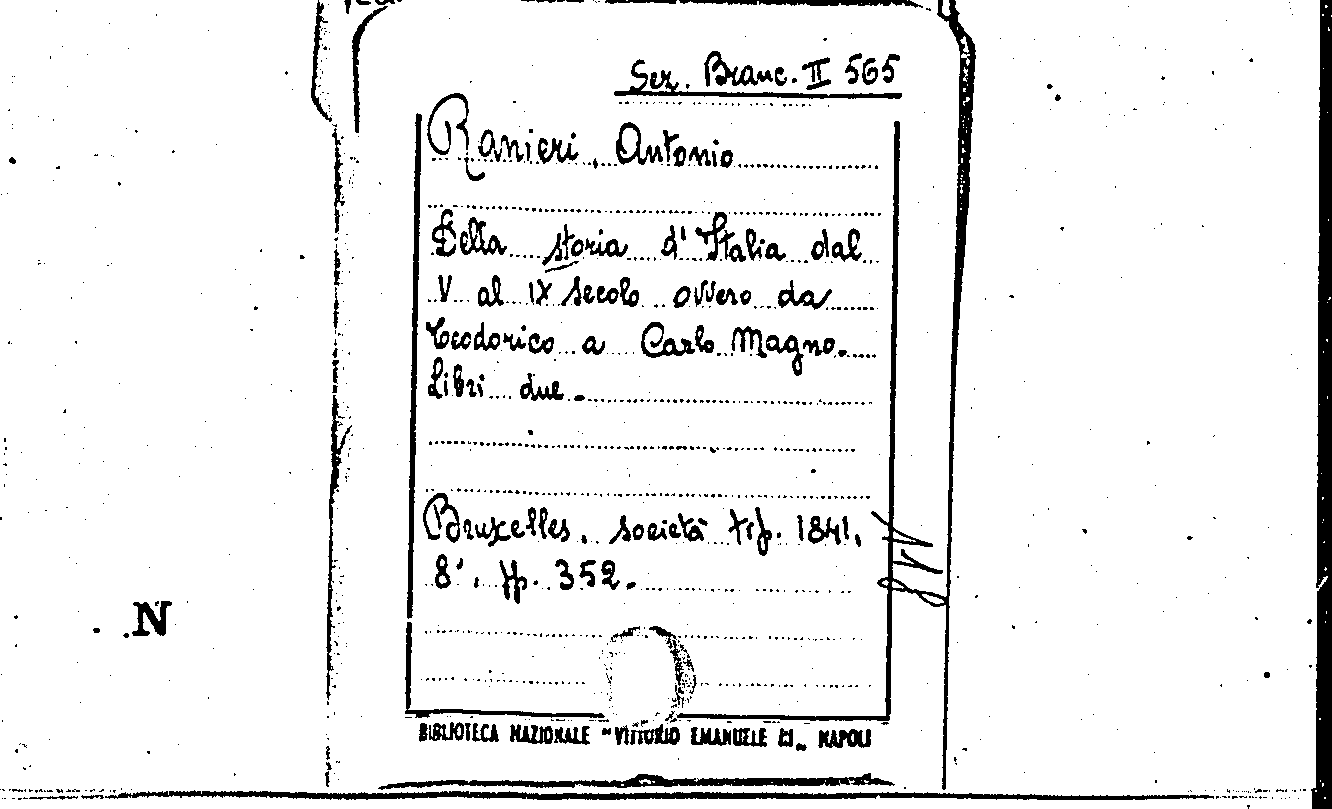 Sez. Branc. II 565
Ranieri, Antonio
Della storia d'Italia dal
V al IX secolo ovvero da
Teodorico a Carlo Magno.
Libri due.
Bruxelles, società tip. 1841.
8°. pp. 352.
N
BIBLIOTECA NAZIONALE "VITTORIO EMANUELE III" NAPOLI